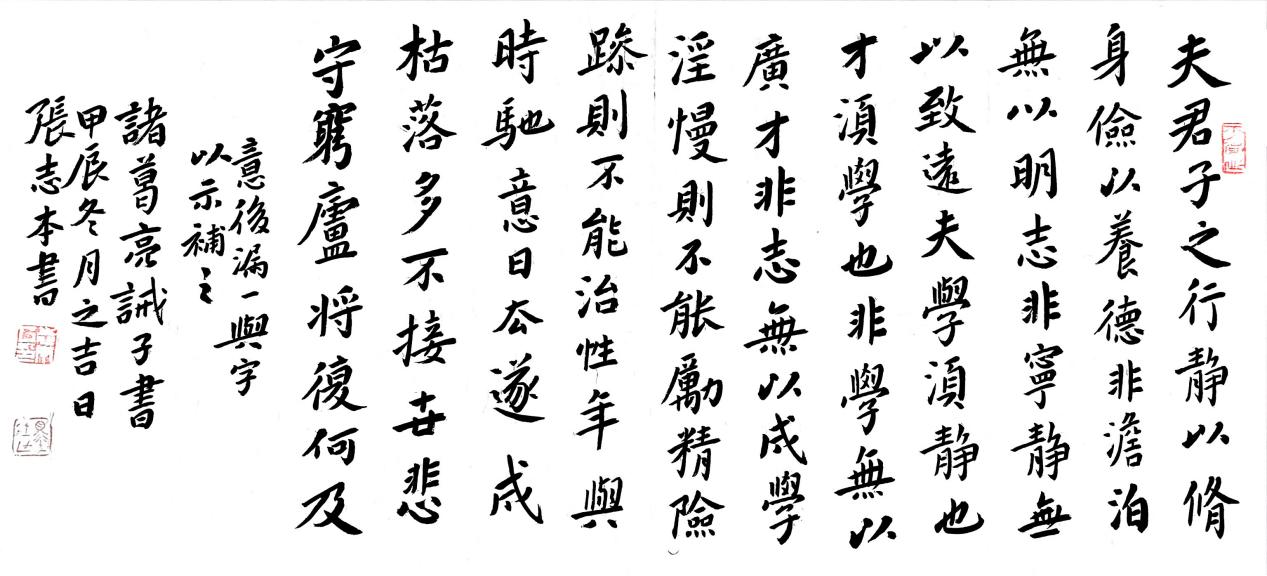 夫君子之行静以脩
身儉以養德非澹泊
無以明志非寧静無
以致遠夫學須静也
才須學也非學無以
廣才非志無以成學
淫慢則不能勵精險
躁則不能治性年與
時馳意日去遂成
枯落多不接世悲
守窮廬将復何及
意後漏一與字
以示補之
諸葛亮誡子書
甲辰冬月之吉日
張志本書